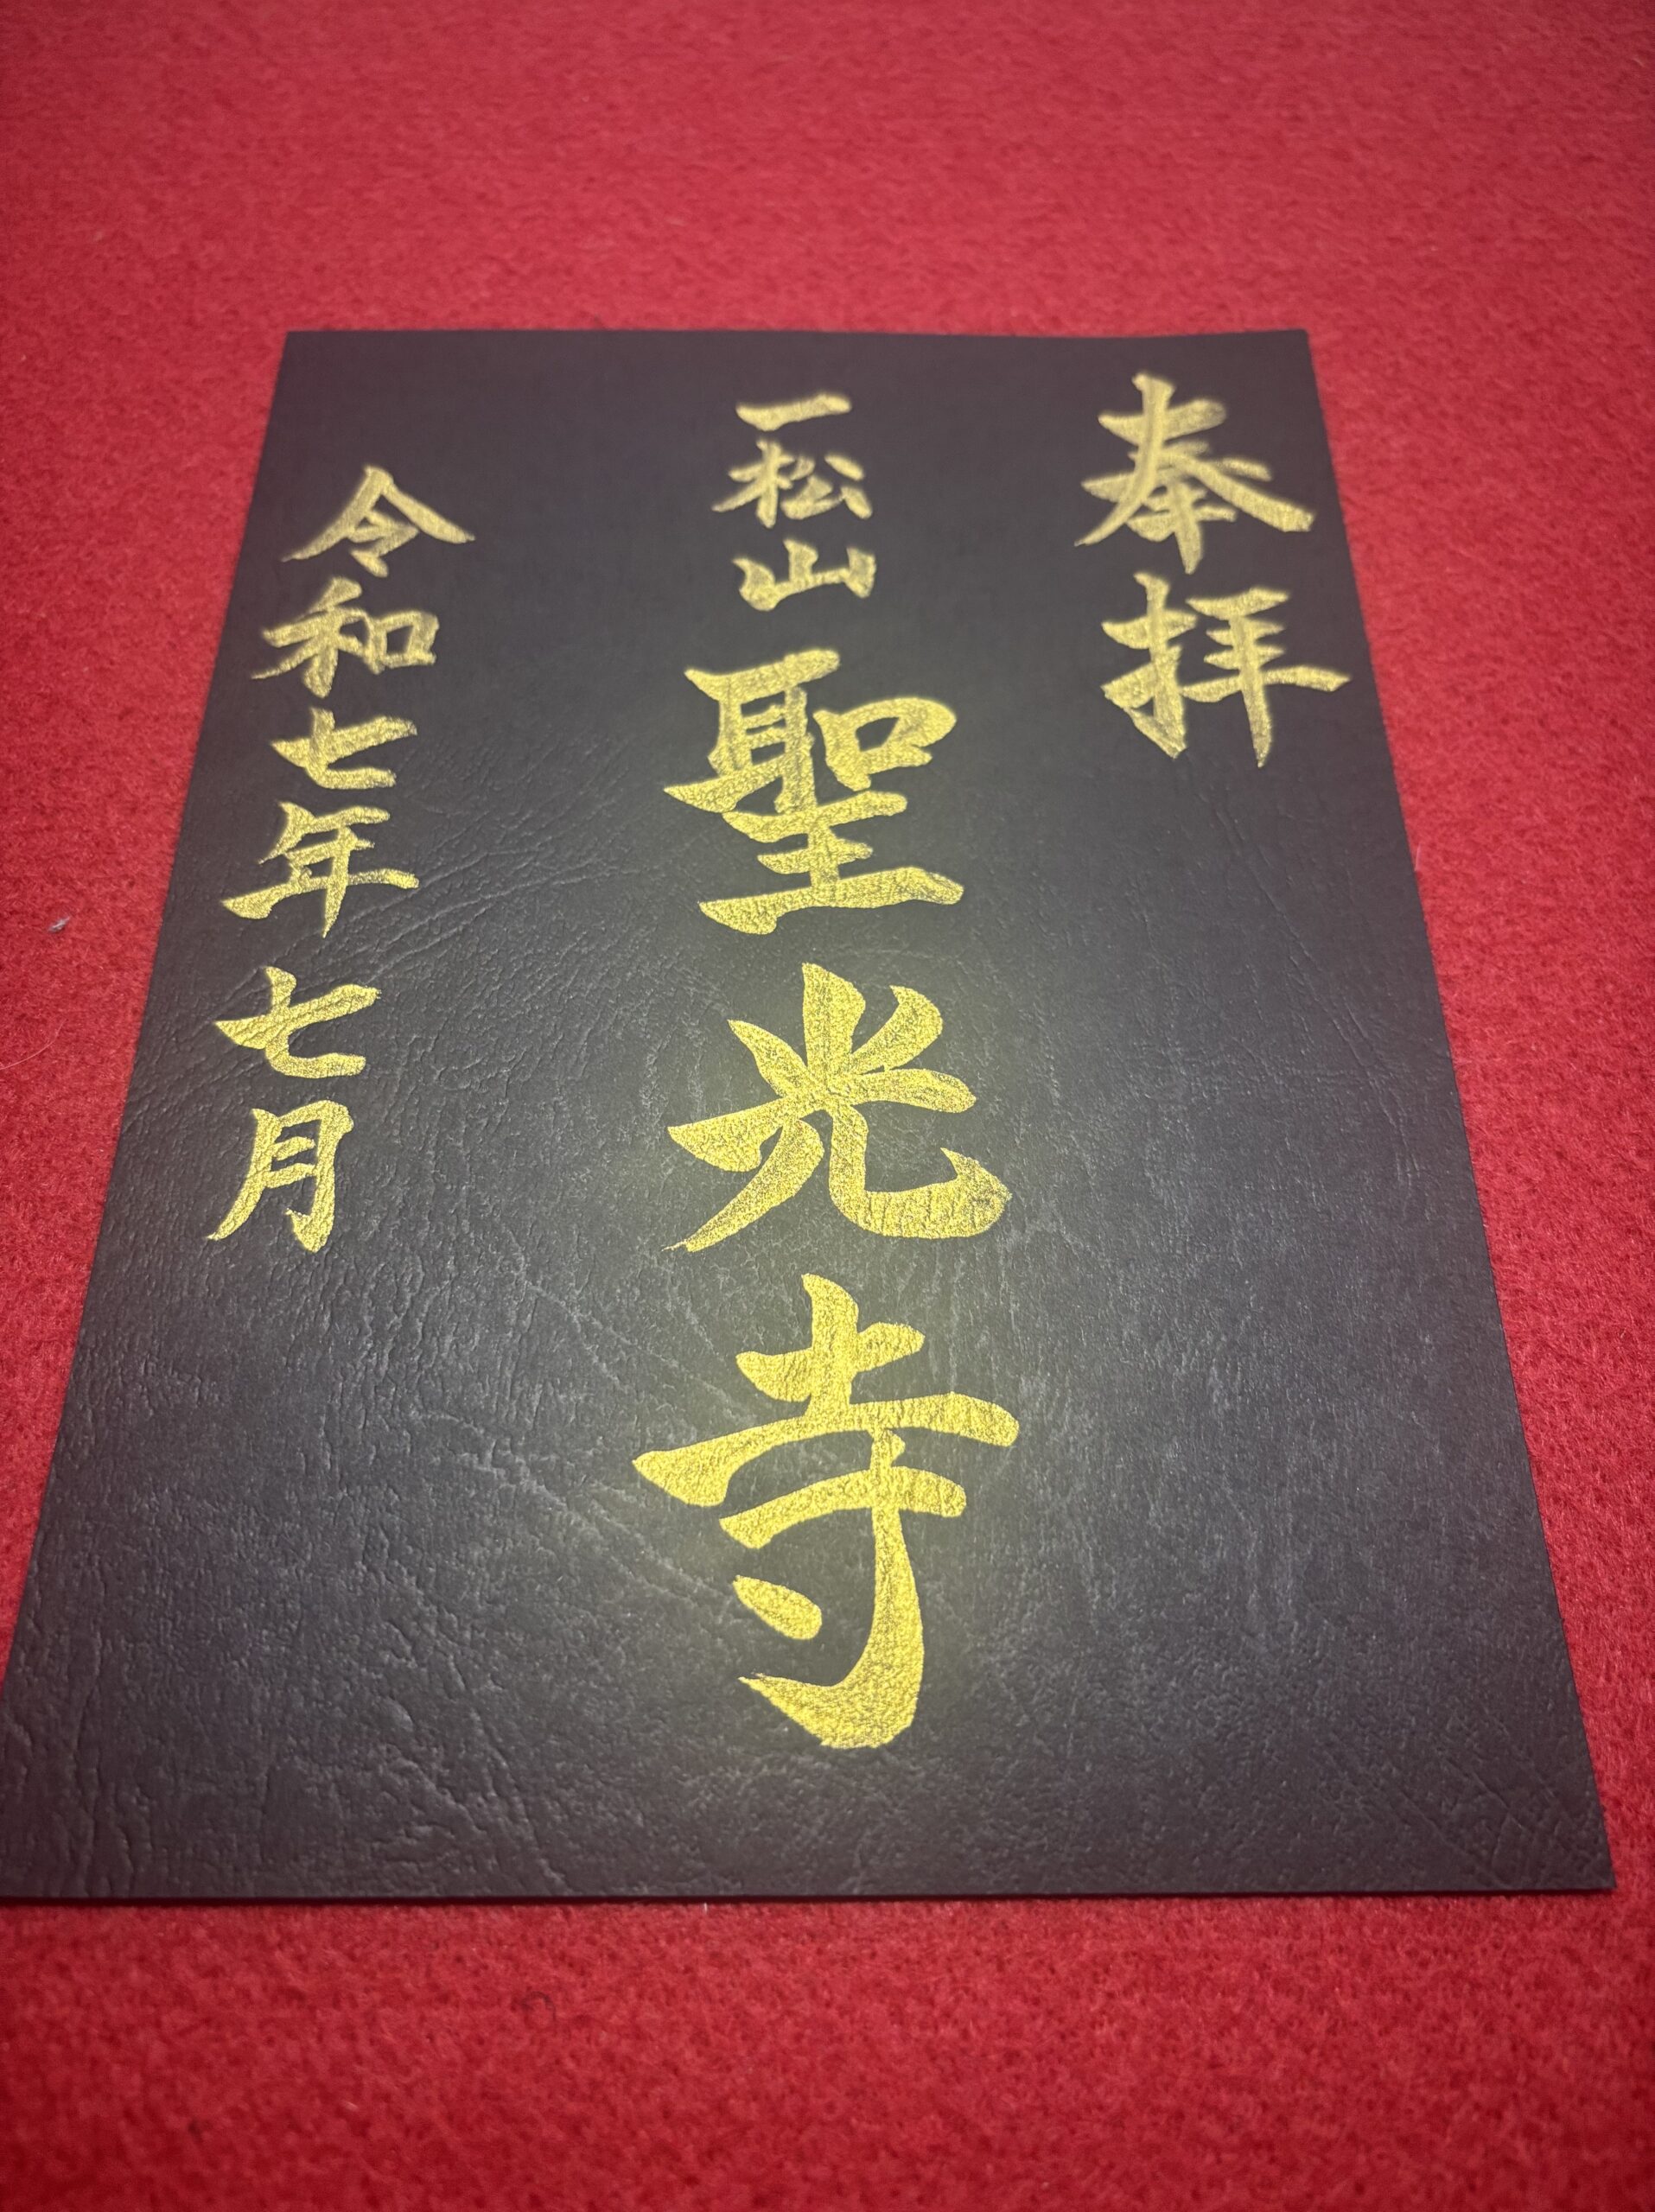 奉拝
一松山 聖光寺
令和七年七月